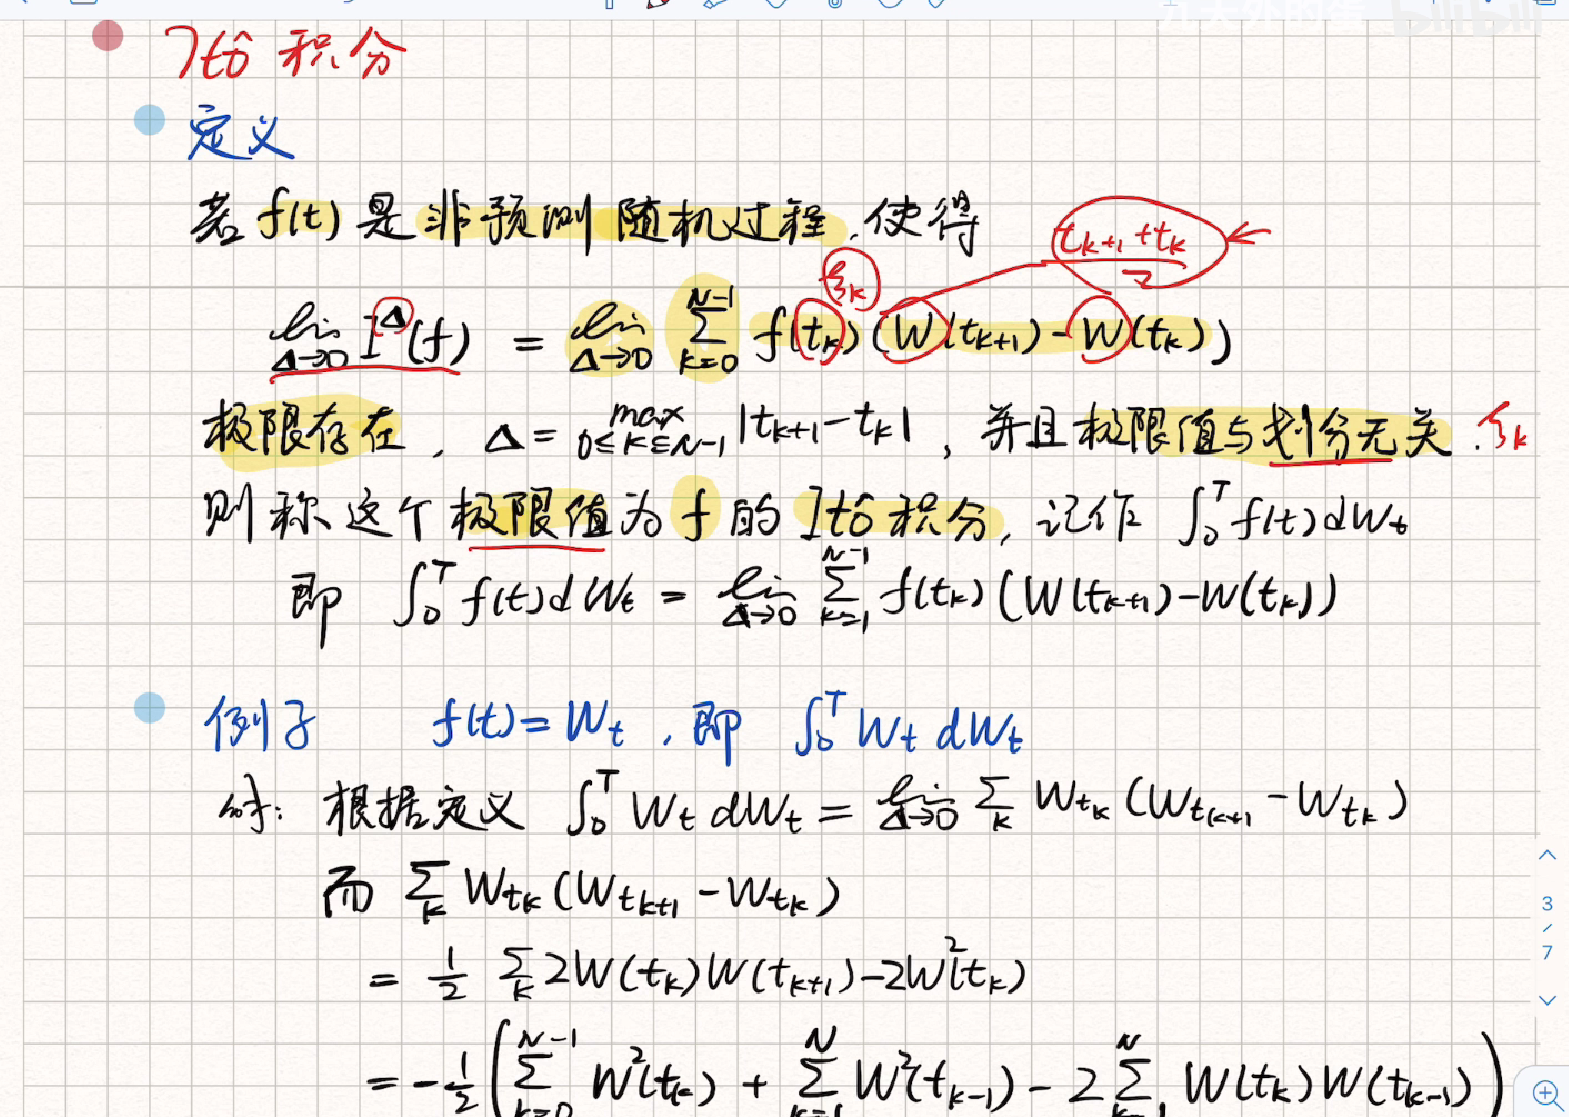 Itô 积分
定义
若 f(t) 是非预测随机过程,使得
ξk
(tk+1 + tk)/2
lim Δ→0 I^Δ(f) = lim Δ→0 Σ_{k=0}^{N-1} f(tk)(W(tk+1)-W(tk))
极限存在, Δ = max 0≤k≤N-1 |tk+1-tk|, 并且极限值与划分无关. ξk
则称这个极限值为 f 的 Itô 积分, 记作 ∫_0^T f(t)dWt
即 ∫_0^T f(t)dWt = lim Δ→0 Σ_{k=1}^{N-1} f(tk)(W(tk+1)-W(tk))
例子 f(t)=Wt, 即 ∫_0^T Wt dWt
解: 根据定义 ∫_0^T Wt dWt = lim Δ→0 Σ_k Wtk(Wtk+1 - Wtk)
而 Σ_k Wtk(Wtk+1 - Wtk)
= 1/2 Σ_k 2W(tk)W(tk+1)-2W²(tk)
= -1/2 (Σ_{k=0}^{N-1} W²(tk) + Σ_{k=1}^{N} W²(tk-1) - 2Σ^{N} W(tk)W(tk-1))
3
/
7